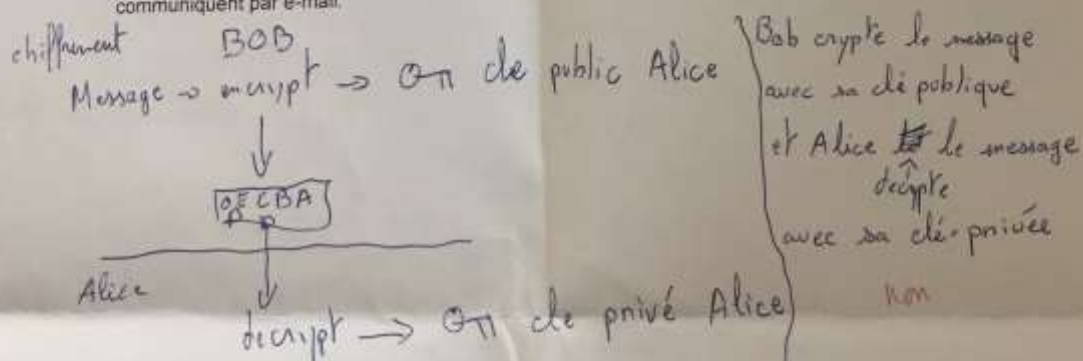 communiquent par e-mail.
chiffrement BOB
Message → encrypt → clé public Alice
Alice
decrypt → clé privé Alice
Bob crypte le message
avec sa clé publique
et Alice decrypte le message
avec sa clé privée
non